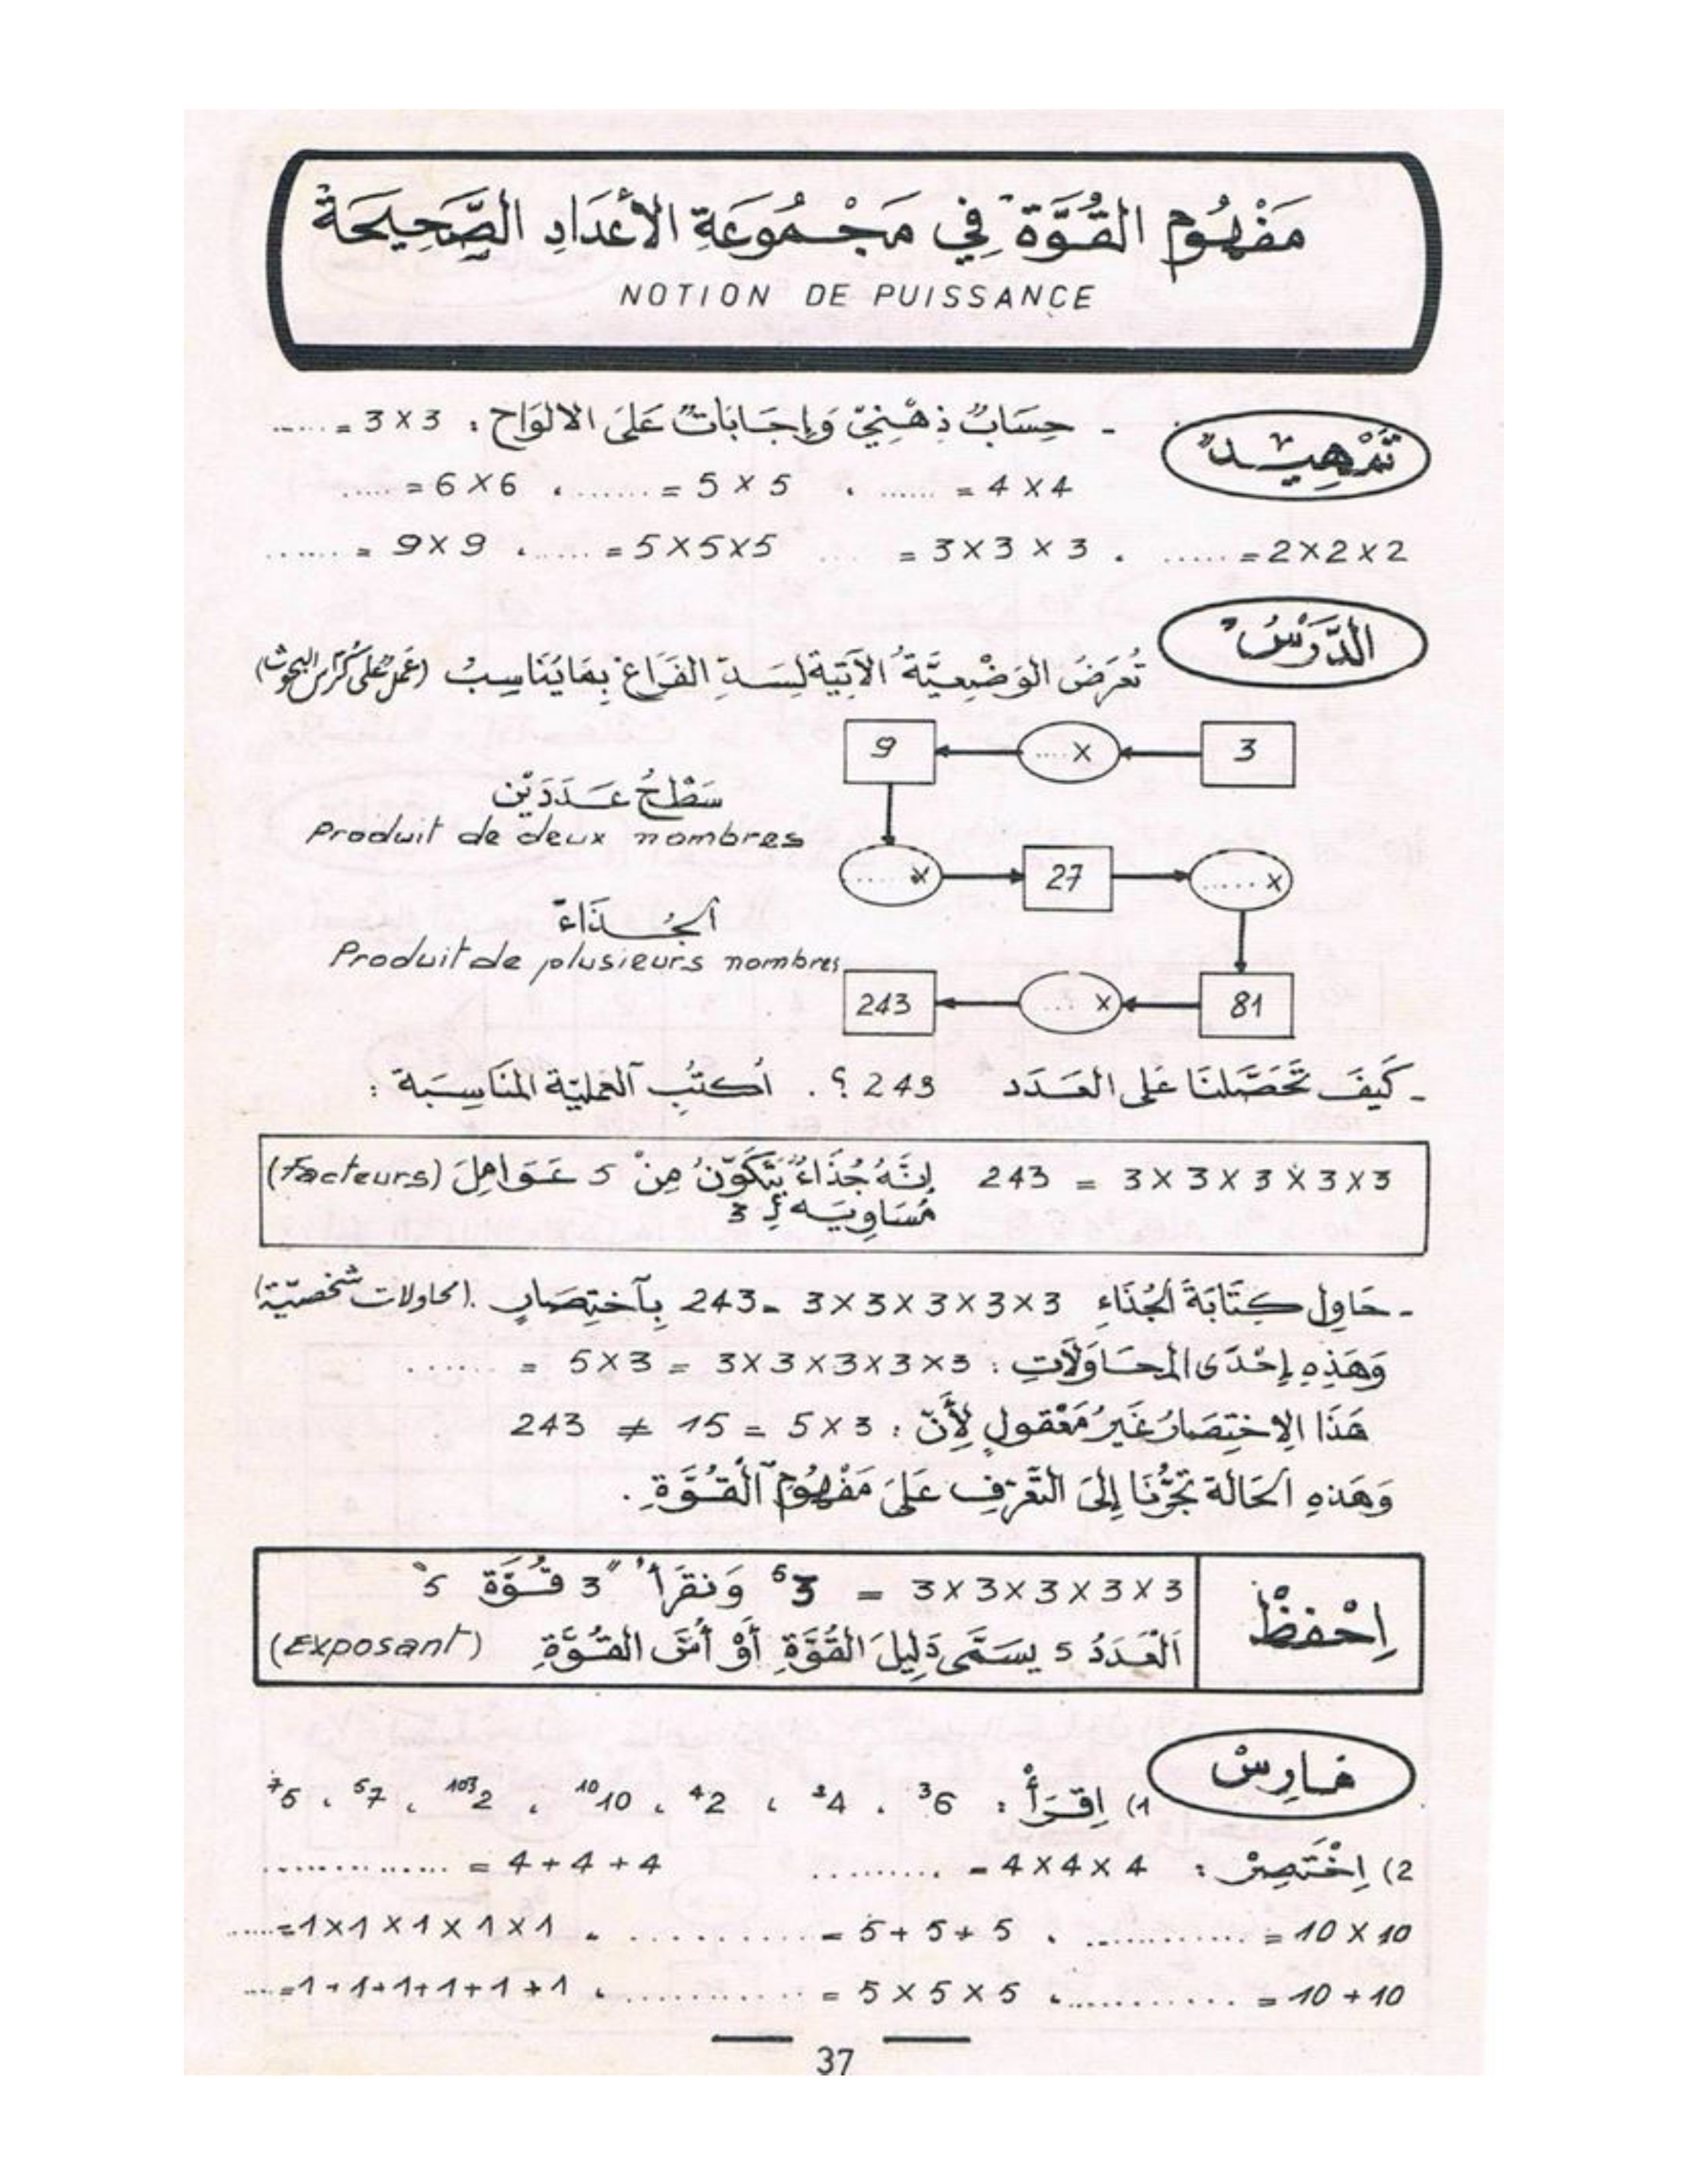 مَفْهُومُ القُوَّةِ فِي مَجْمُوعَةِ الأَعْدَادِ الصَّحِيحَةِ
NOTION DE PUISSANCE
تَمْهِيدٌ
- حِسَابٌ ذِهْنِيّ وَإِجَابَاتٌ عَلَى الالوَاحِ : 3 × 3 = ......
4 × 4 = ...... ، 5 × 5 = ....... ، 6 × 6 = .....
2 × 2 × 2 = ..... ، 3 × 3 × 3 = .... 5 × 5 × 5 = ...... ، 9 × 9 = ......
الدَّرْسُ
تُعْرَضُ الوَضْعِيَّةُ الآتِيَة لِسَدِّ الفَرَاغِ بِمَا يُنَاسِبُ (عَمَلٌ عَلَى كُرَّاسِ البحُوثِ)
3 × .... 9
سَطْحُ عَدَدَيْنِ
Produit de deux nombres
× ..... 27 × .....
الجُذَاءُ
Produit de plusieurs nombres
81 × .... 243
- كَيْفَ تَحَصَّلنَا عَلَى العَدَد 243 ؟ . أُكتُبِ العَمَلِيَّة المُنَاسِبَة :
243 = 3 × 3 × 3 × 3 × 3 إِنَّهُ جُذَاءٌ يَتَكَوَّنُ مِنْ 5 عَوَامِلَ (Facteurs)
مُسَاوِيَه لِ 3
- حَاوِل كِتَابَةَ الجُذَاءِ 3 × 3 × 3 × 3 × 3 = 243 بِآختِصَارٍ . (محاولات شخصيّة)
وَهَذِهِ إِحْدَى المحَاوَلَاتِ : 3 × 3 × 3 × 3 × 3 = 5 × 3 = ......
هَذَا الِاختِصَارُ غَيرُ مَعْقولٍ لِأَنّ : 5 × 3 = 15 ≠ 243
وَهَذهِ الحَالَة تَجُرُّنَا إِلَى التَّعَرّفِ عَلَى مَفْهُومِ القُوَّةِ .
اِحْفظْ
3 × 3 × 3 × 3 × 3 = 3⁵ وَنقرَأ " 3 قُوَّة 5 "
العَدَدُ 5 يسَمَّى دَلِيلَ القُوَّةِ أَوْ أُسَّ القُوَّةِ (Exposant)
تمارِينْ
1) اِقْرَأْ : 6³ ، 4² ، 2⁴ ، 10¹⁰ ، 2¹⁰³ ، 7⁵ ، 5⁷
2) اِخْتَصِرْ : 4 × 4 × 4 = ......... 4 + 4 + 4 = ..............
10 × 10 = ............ ، 5 + 5 + 5 = .......... ، 1 × 1 × 1 × 1 × 1 = .....
10 + 10 = ............ ، 5 × 5 × 5 = ........... ، 1 + 1 + 1 + 1 + 1 + 1 = ....
37